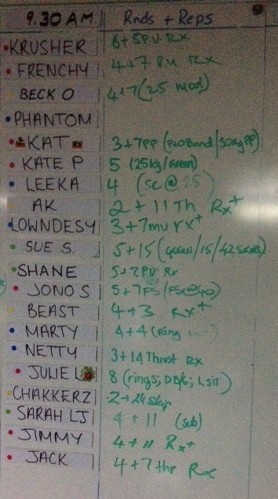 9.30 AM Rnds + Reps
KRUSHER 6+5PU Rx
FRENCHY 4+7 PU Rx
BECK O 4+7 (25 mod)
PHANTOM
KAT 3+7PP (Band/30kg PP)
KATE P 5 (25kg/Green)
LEEKA 4 (SC @ 25)
AK 2 + 11 Th Rx+
LOWNDESY 3+7mu rx+
SUE S. 5+15 (
SHANE 5+7PU Rx
JONO S 5+7FS
BEAST 4+3 Rx+
MARTY 4+4 (ring
NETTY 3+14 Thrust Rx
JULIE L 8 (rings; DB/k; L sit)
CHAKKERZ 2+24 Skip
SARAH LJ 4 + 11 (sub)
JIMMY 4 + 11 Rx+
JACK 4+7 thr Rx